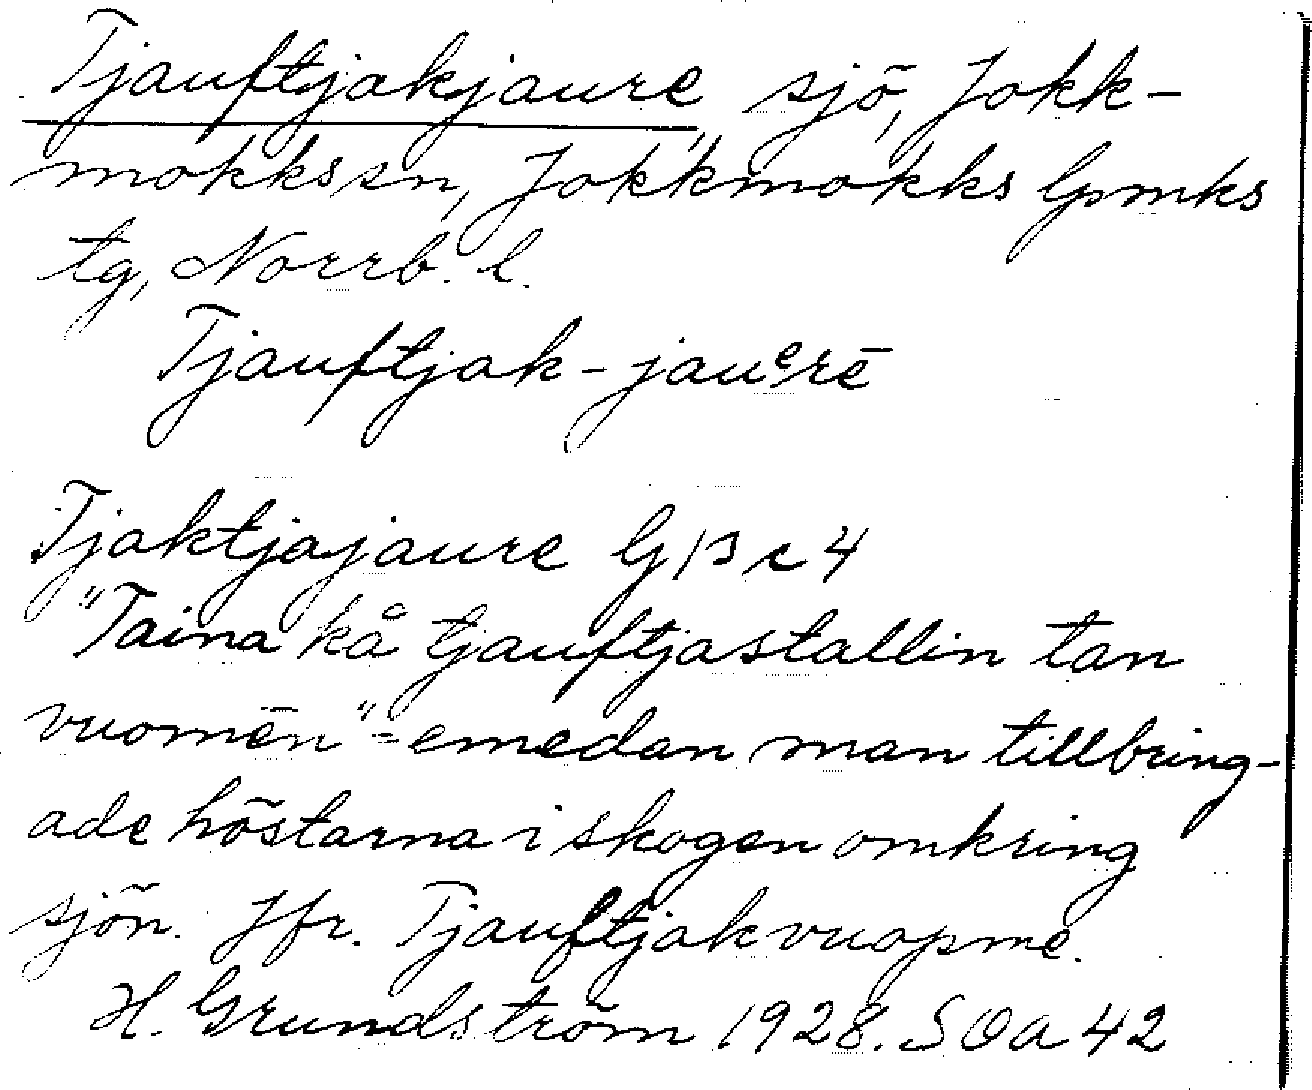 Tjauftjakjaure, sjö, Jokk-
mokks sn, Jokkmokks lpmks
tg, Norrb. l.
Tjauftjak-jauᵉrē
Tjaktjajaure G13 c 4
"Taina kå tjauftjastallin tan
vuomēn" = emedan man tillbring-
ade höstarna i skogen omkring
sjön. Jfr. Tjauftjakvuopme.
H. Grundström 1928. SOA 42